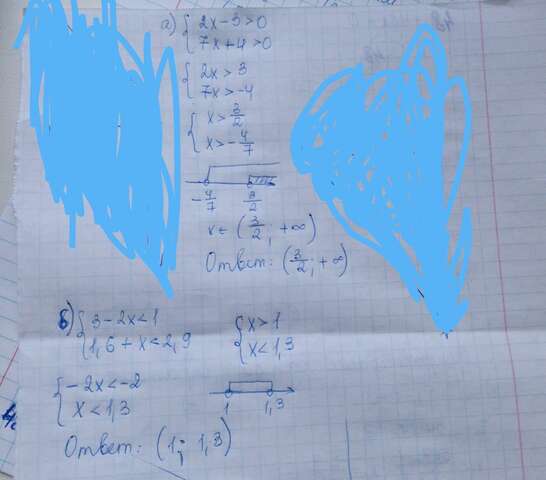 а) { 2x - 3 > 0
7x + 4 > 0
{ 2x > 3
7x > -4
{ x > 3/2
x > -4/7
-4/7 3/2
x ∈ (3/2; +∞)
Ответ: (3/2; +∞)
б) { 3 - 2x < 1
1,6 + x < 2,9
{ -2x < -2
x < 1,3
{ x > 1
x < 1,3
1 1,3
Ответ: (1; 1,3)